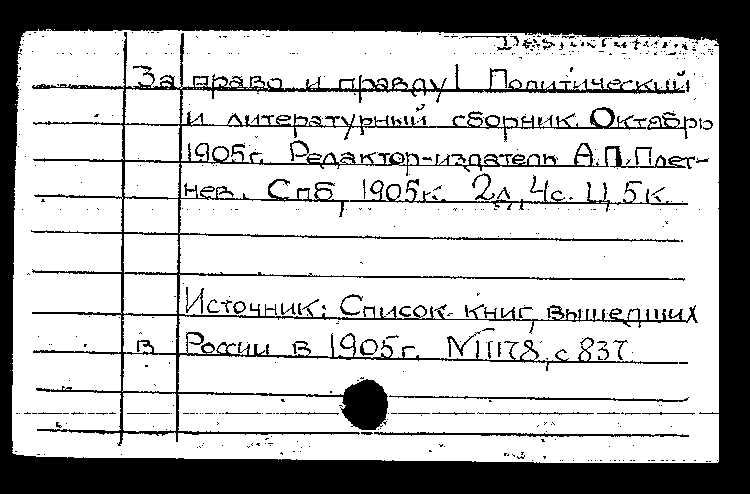 Desiderata
За право и правду! Политический
и литературный сборник. Октябрь
1905г. Редактор-издатель А.П.Плет-
нев. Спб, 1905к. 2л, 4с. Ц, 5к.
Источник: Список книг, вышедших
в России в 1905г. с 837